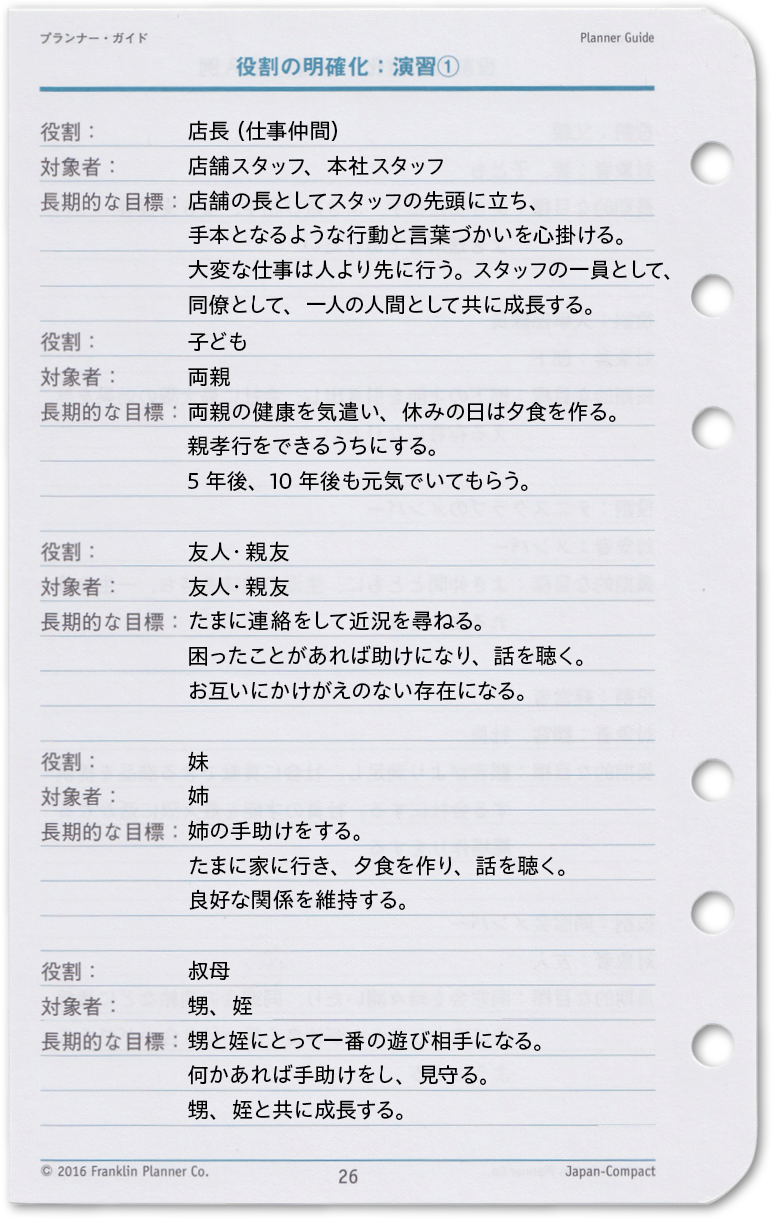 プランナー・ガイド Planner Guide
役割の明確化：演習①
役割： 店長 (仕事仲間)
対象者： 店舗スタッフ、本社スタッフ
長期的な目標：店舗の長としてスタッフの先頭に立ち、
手本となるような行動と言葉づかいを心掛ける。
大変な仕事は人より先に行う。スタッフの一員として、
同僚として、一人の人間として共に成長する。
役割： 子ども
対象者： 両親
長期的な目標：両親の健康を気遣い、休みの日は夕食を作る。
親孝行をできるうちにする。
5 年後、10 年後も元気でいてもらう。
役割： 友人・親友
対象者： 友人・親友
長期的な目標：たまに連絡をして近況を尋ねる。
困ったことがあれば助けになり、話を聴く。
お互いにかけがえのない存在になる。
役割： 妹
対象者： 姉
長期的な目標：姉の手助けをする。
たまに家に行き、夕食を作り、話を聴く。
良好な関係を維持する。
役割： 叔母
対象者： 甥、姪
長期的な目標：甥と姪にとって一番の遊び相手になる。
何かあれば手助けをし、見守る。
甥、姪と共に成長する。
© 2016 Franklin Planner Co. 26 Japan-Compact